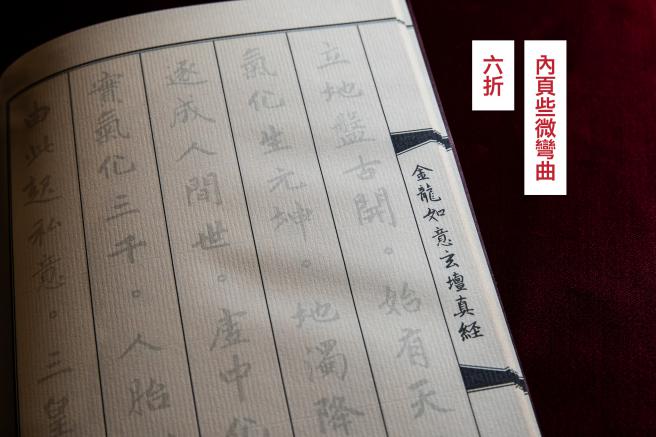 內頁些微彎曲
六折
金龍如意玄壇真經
立地盤古開。始有天
氣化生元坤。地濁降
遂成人間世。虛中
實氣化三千。人胎
由此起私意。三皇